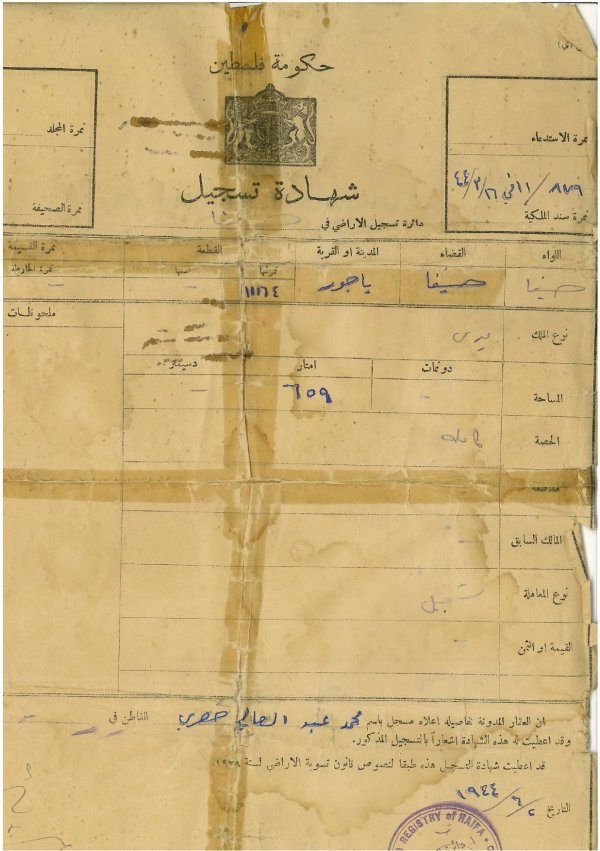 حكومة فلسطين
نمرة المجلد
نمرة الصحيفة
نمرة الاستدعاء
٤٤/٣/٢٦
نمرة سند الملكية
شهادة تسجيل
دائرة تسجيل الاراضي في حيفا
اللواء القضاء المدينة او القرية القطعة نمرة القسيمة
نمرتها اسمها نمرة الخارطة
حيفا حيفا ياجور ١١١٦٤
نوع الملك ميري ملحوظات
دونمات امتار دسيمتر
المساحة ٦٥٩
الحصة كاملة
المالك السابق
نوع المعاملة تسجيل
القيمة او الثمن
ان العقار المدونة تفاصيله اعلاه مسجل باسم محمد عبد القاطن في
وقد اعطيت له هذه الشهادة اشعاراً بالتسجيل المذكور.
قد اعطيت شهادة التسجيل هذه طبقا لنصوص قانون تسوية الاراضي لسنة ١٩٢٨
التاريخ ١٩٤٤/٦/٢
REGISTRY of HAIFA